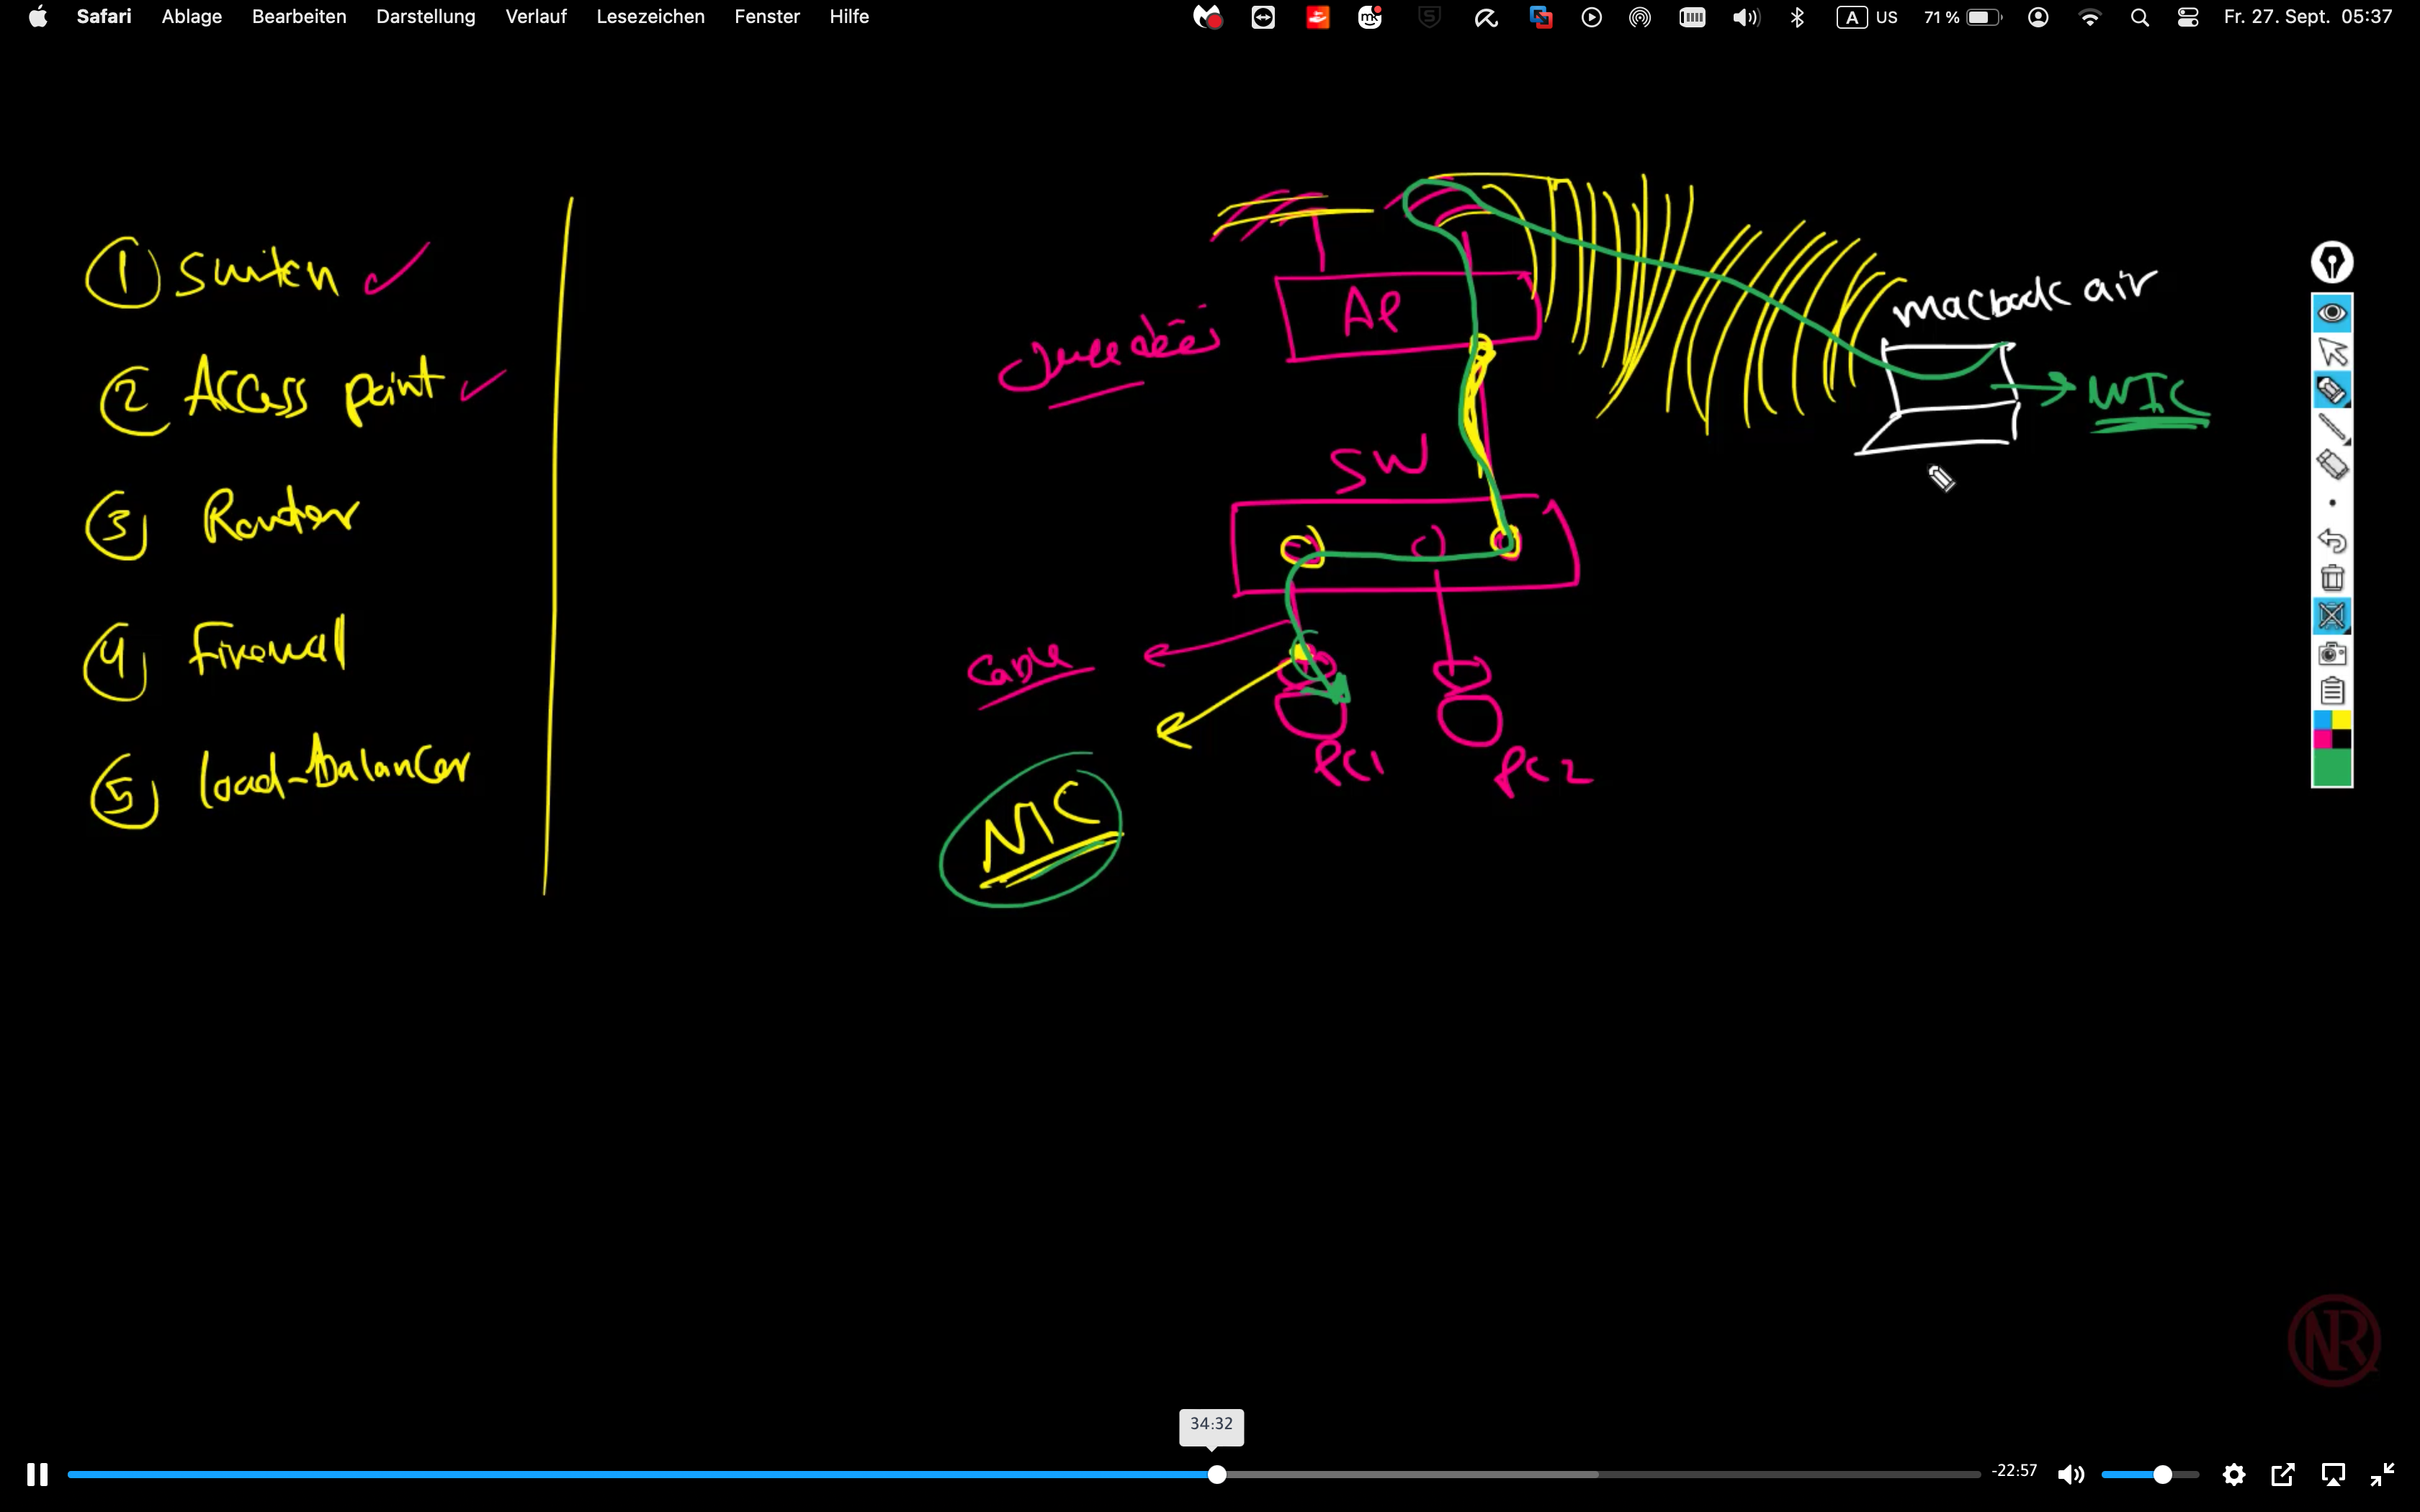 Safari Ablage Bearbeiten Darstellung Verlauf Lesezeichen Fenster Hilfe
A US 71 % Fr. 27. Sept. 05:37
1 Switch
2 Access point
3 Router
4 Firewall
5 load-balancer
AP
macbook air
WIC
SW
Cable
PC1
PC2
NIC
NR
34:32
-22:57